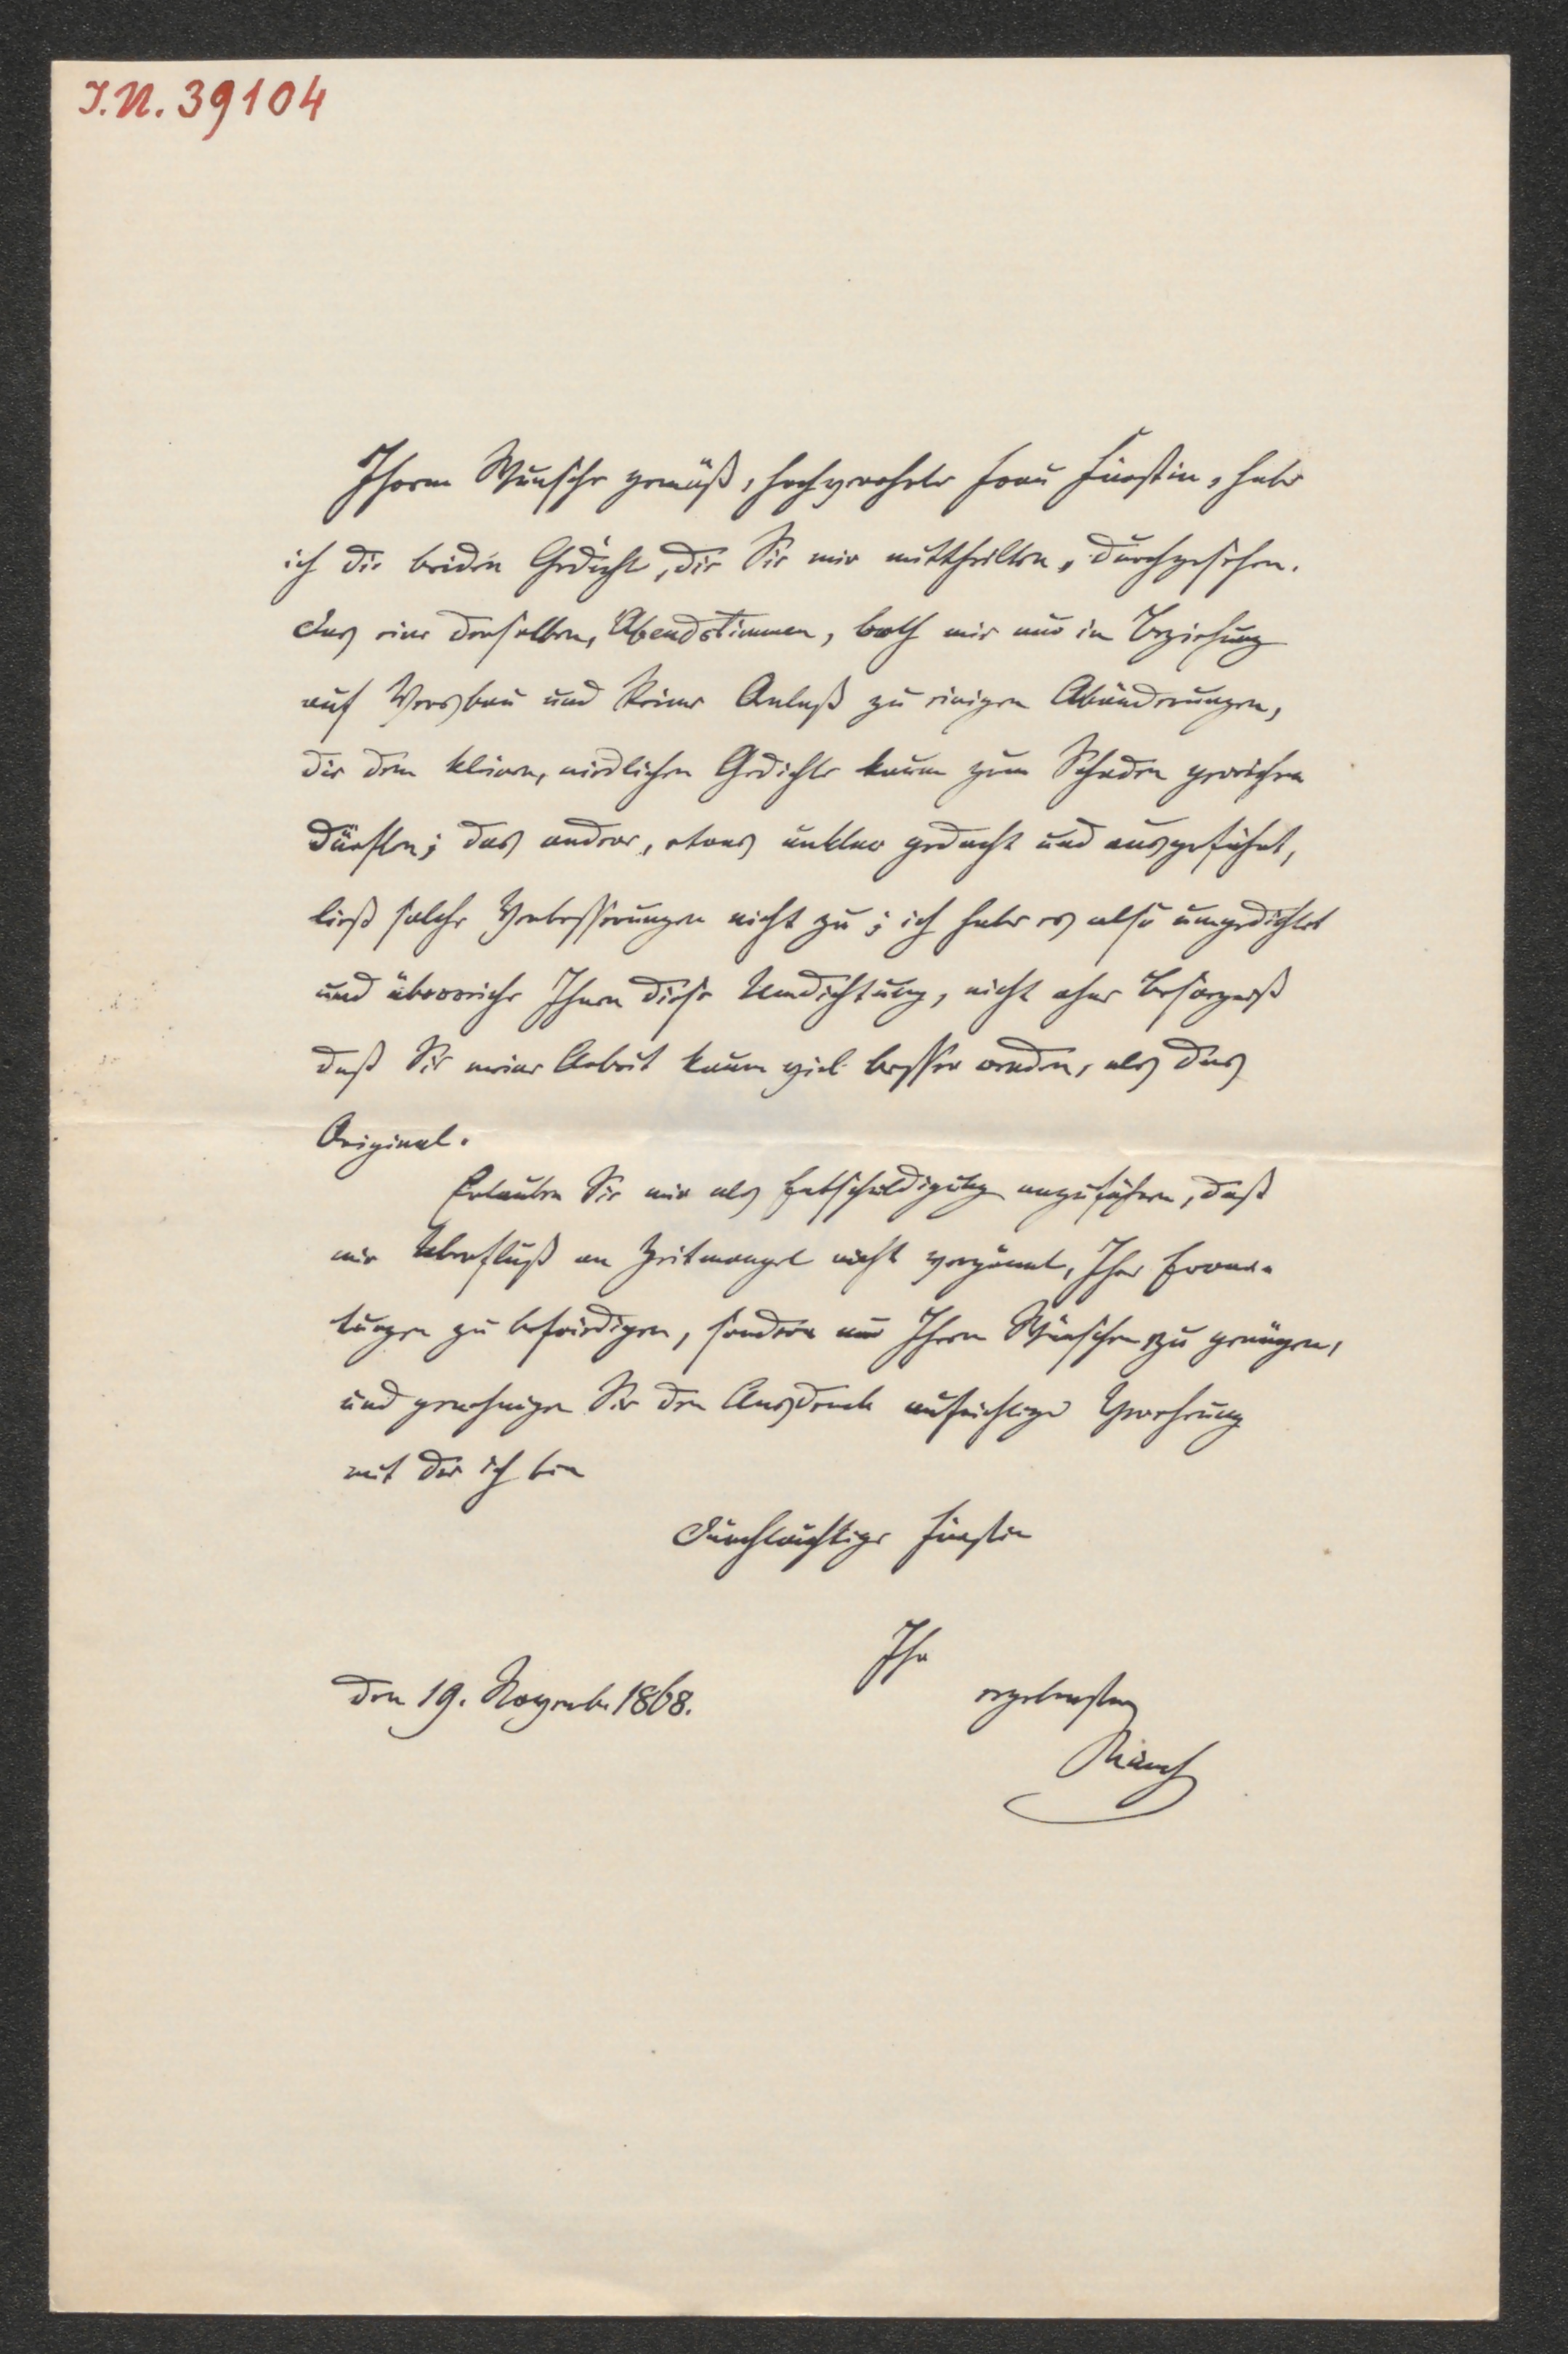 I.N. 39104
Ihrem Wunsche gemäß, hochverehrte Frau Fürstin, habe
ich die beiden Gedichte, die Sie mir mittheilten, durchgesehen.
Das eine derselben, Abendstimmen, both mir nur in Beziehung
auf Versbau und Reime Anlaß zu einigen Abänderungen,
die dem kleinen, niedlichen Gedichte kaum zum Schaden gereichen
dürften; das andere, etwas unklar gedacht und ausgeführt,
ließ solche Verbesserungen nicht zu; ich habe es also umgedichtet
und überreiche Ihnen diese Umdichtung, nicht ohne Besorgniß
daß Sie meine Arbeit kaum viel besser finden, als das
Original.
Erlauben Sie mir als Entschuldigung anzuführen, daß
mir Überfluß an Zeitmangel nicht vergönnt, Ihre Erwar-
tungen zu befriedigen, sondern nur Ihren Wünschen zu genügen,
und genehmigen Sie den Ausdruck aufrichtiger Verehrung
mit der ich bin
Durchlauchtige Fürstin
Ihr
den 19. Novemb. 1868.
ergebenster
Münch